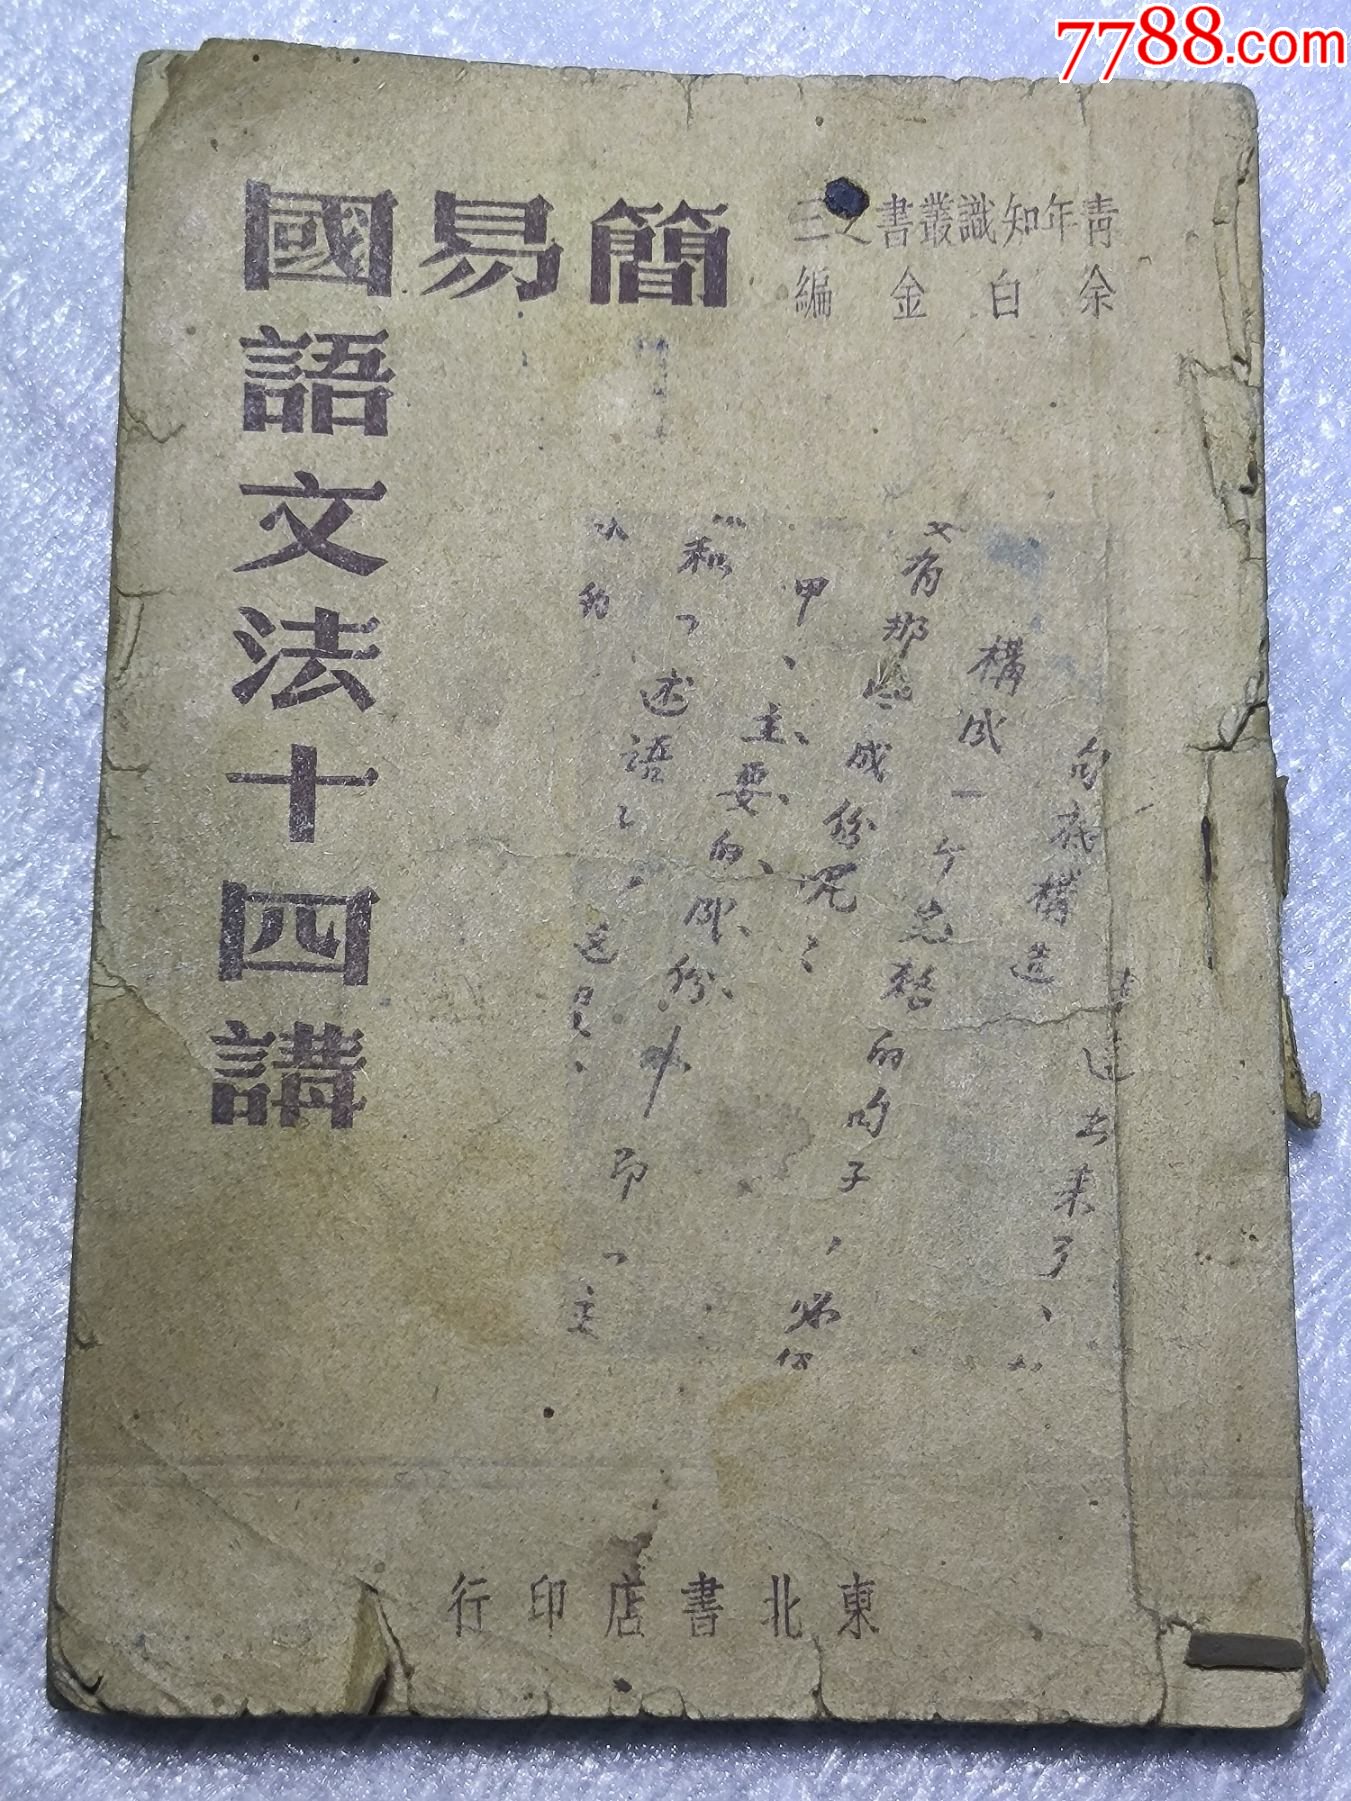 7788.com
青年知識叢書之三
余白金編
簡易
國語文法十四講
句底構造
構成一个完整的句子，必
有那些成份呢？
甲、主要的部份
和「述語」，
這出来了、
東北書店印行